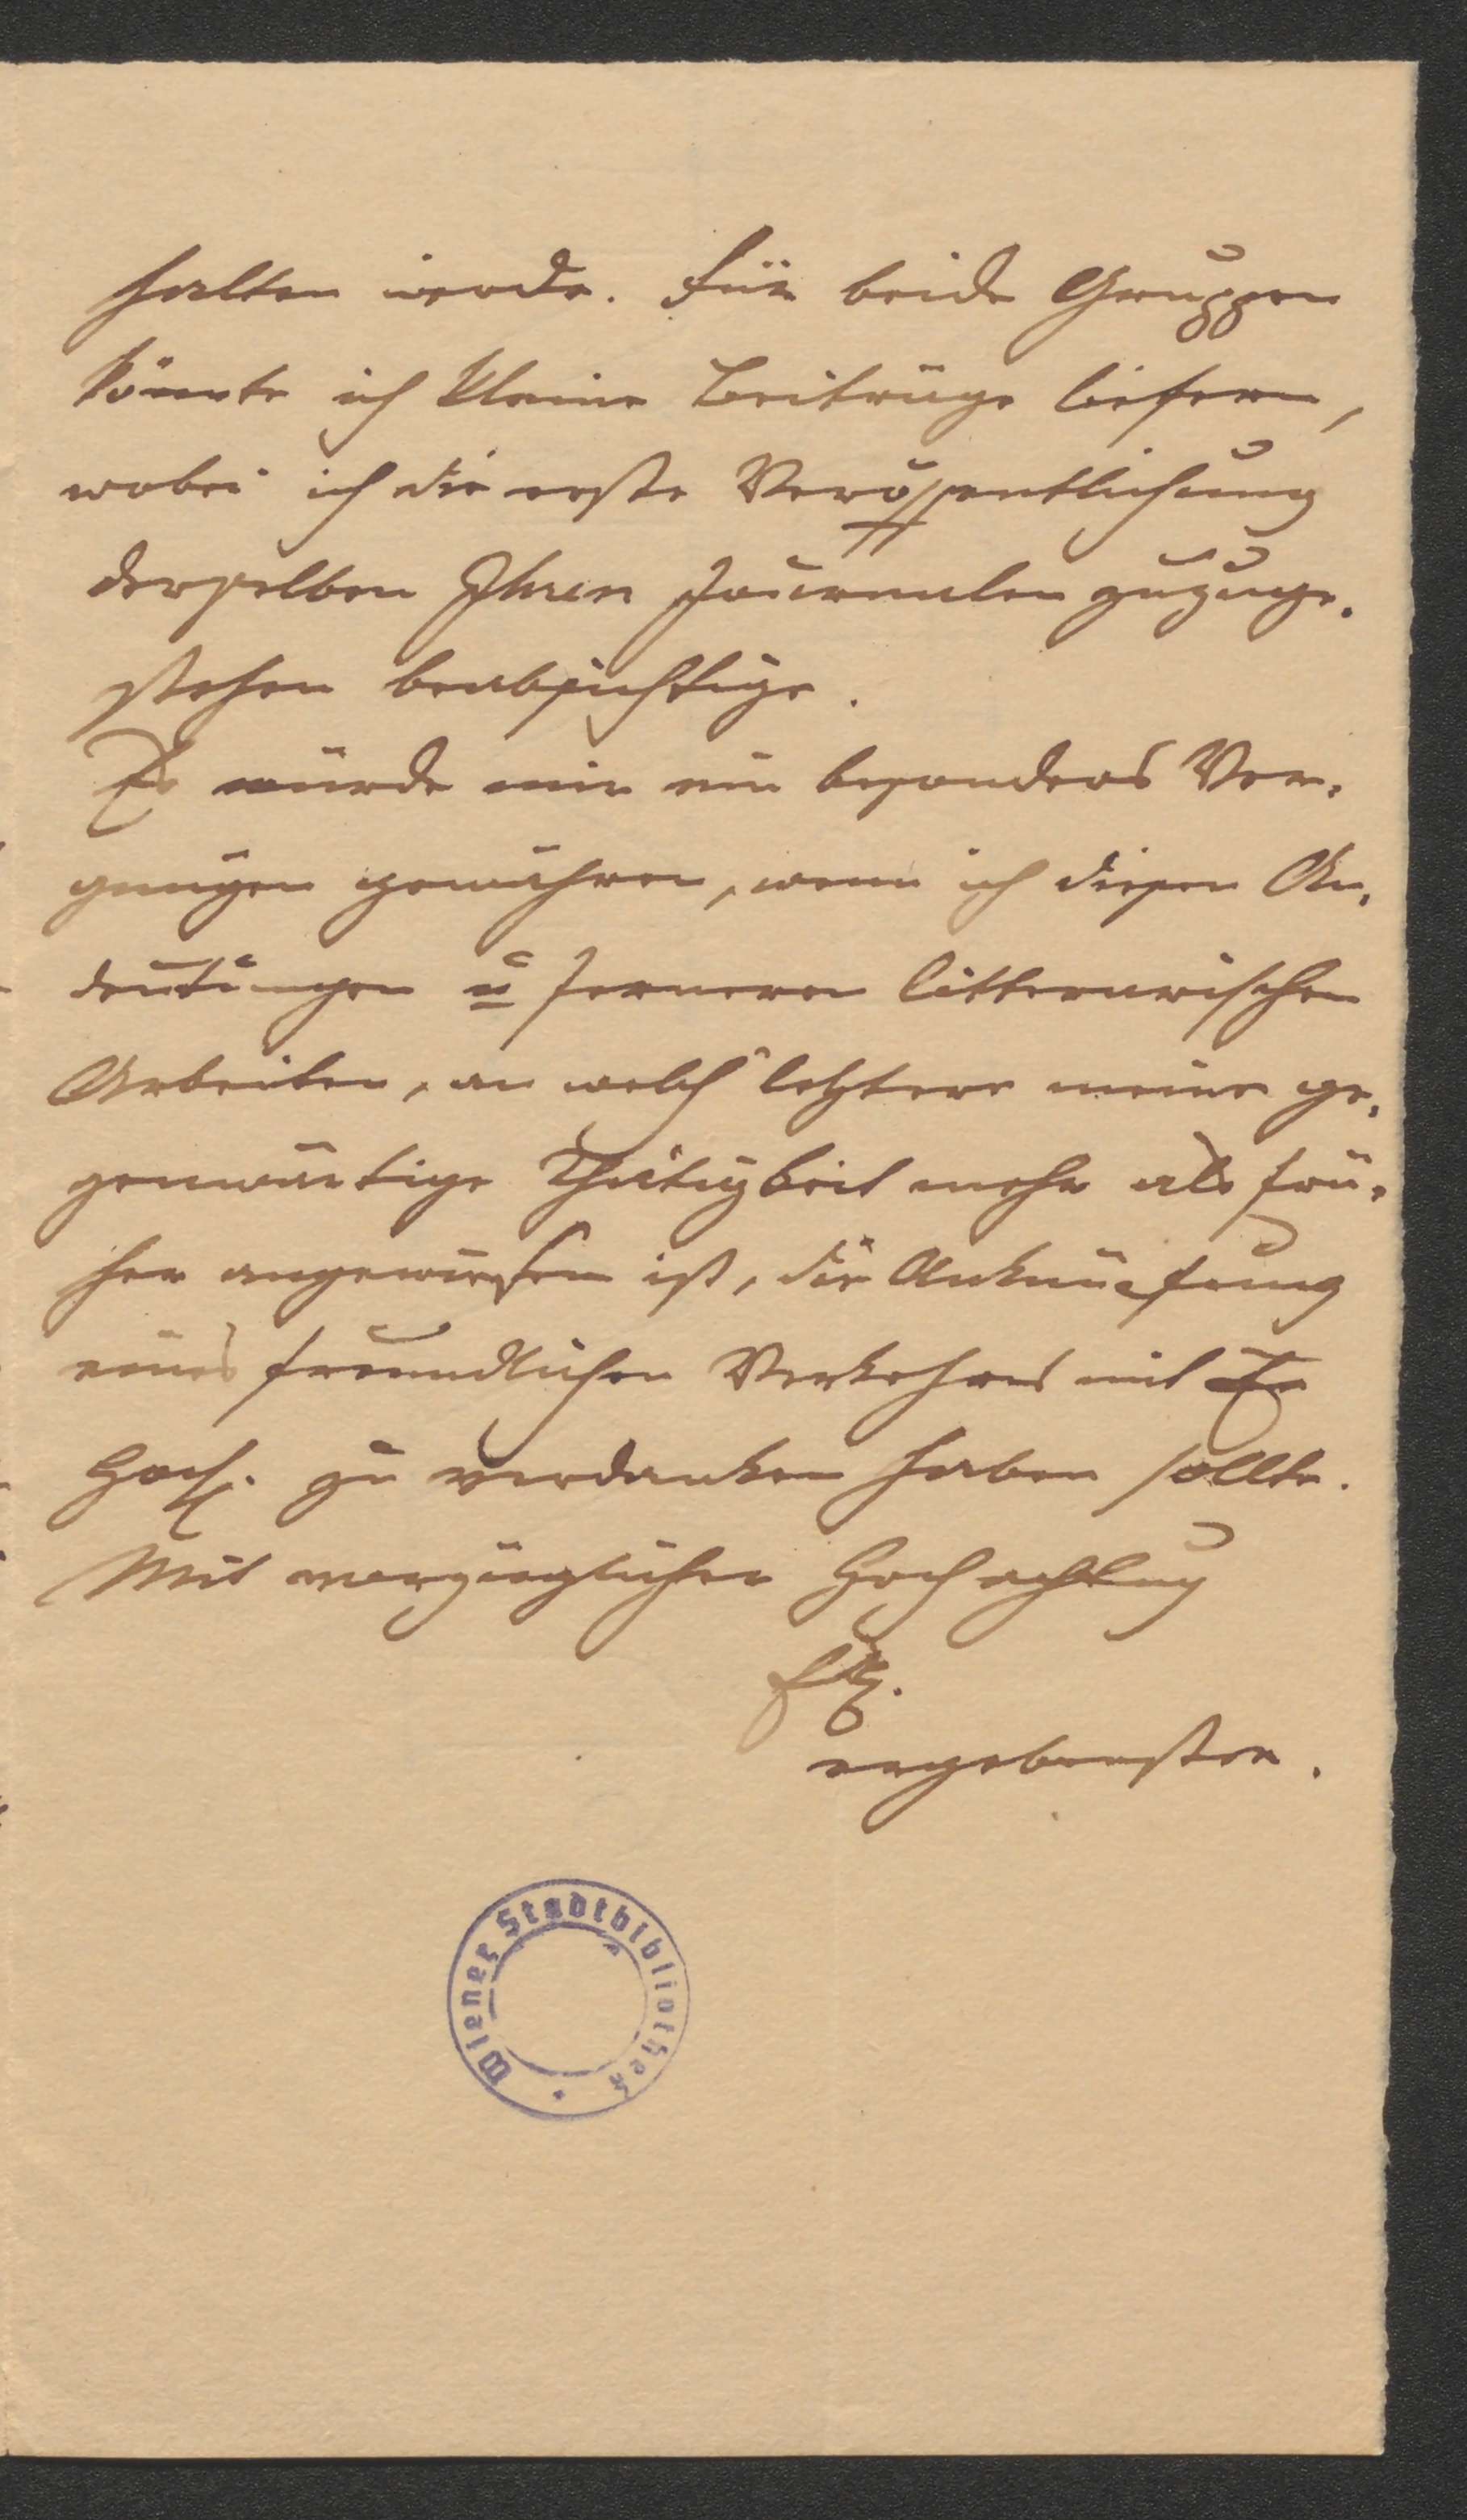 halten werde. Für beide Gruppen
könnte ich kleine Beiträge liefern,
wobei ich die erste Veröffentlichung
derselben Ihren Journalen zuzuge-
stehen beabsichtige.
Es würde mir ein besonderes Ver-
gnügen gewähren, wenn ich diesen An-
deutungen u ferneren litterarischen
Arbeiten, an welch' letztere meine ge-
genwärtige Thätigkeit mehr als frü-
her angewiesen ist, die Anknüpfung
eines freundlichen Verkehres mit Er
Hoch. zu verdanken haben sollte.
Mit vorzüglicher Hochachtung
ergebenster.
Wiener Stadtbibliothek